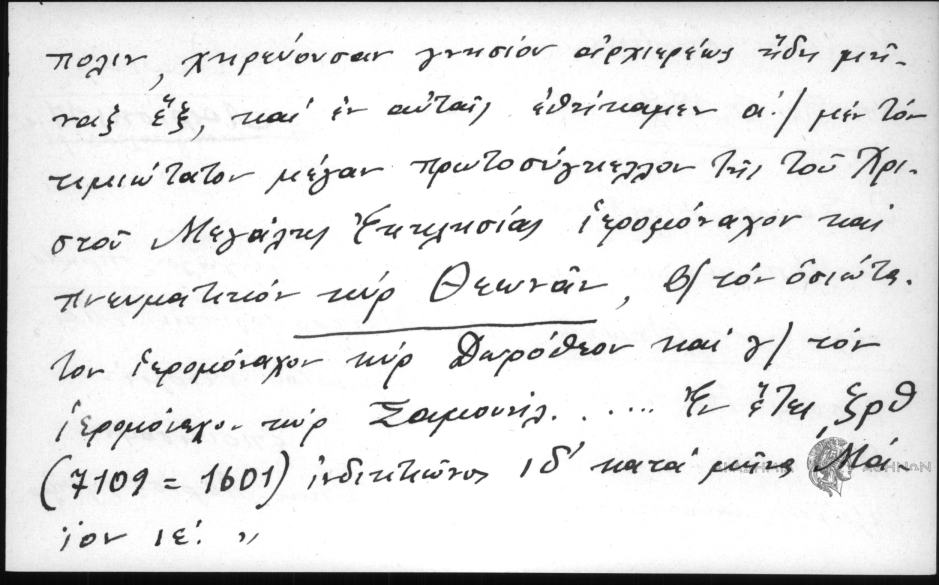 πολιν, χηρεύουσαν γνησίου ἀρχιερέως ἤδη μῆ-
νας ἕξ, καί ἐν αὐταῖς ἐθήκαμεν α΄/ μέν τόν
τιμιώτατον μέγαν πρωτοσύγκελλον τῆς τοῦ Χρι-
στοῦ Μεγάλης Ἐκκλησίας ἱερομόναχον καί
πνευματικόν κύρ Θεωνᾶν, β/ τόν ὁσιώτα-
τον ἱερομόναχον κύρ Δωρόθεον καί γ/ τόν
ἱερομόναχον κύρ Σαμουήλ. ..... Ἐν ἔτει ͵ζρθ
(7109 = 1601) ἰνδικτιῶνος ιδ΄ κατά μῆνα Μά-
ϊον ιε΄. "